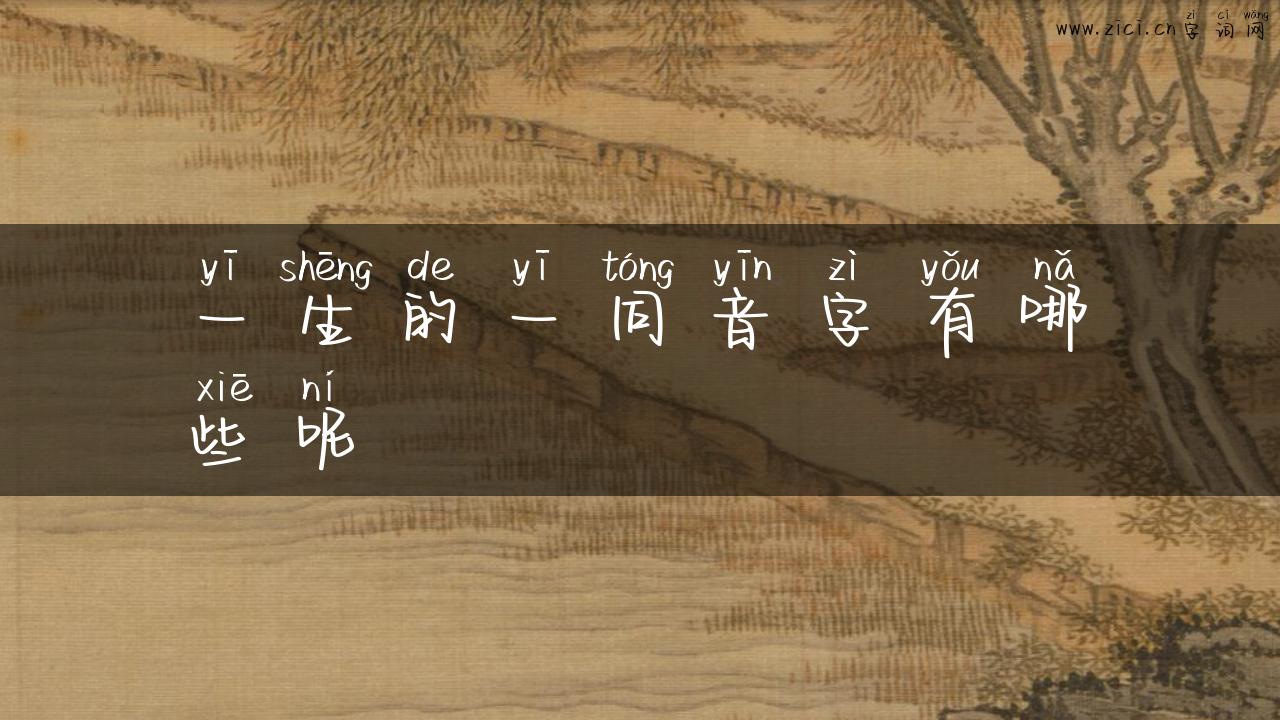 www.zici.cn zì cí wǎng
字 词 网
yī shēng de yī tóng yīn zì yǒu nǎ
一 生 的 一 同 音 字 有 哪
xiē ní
些 呢